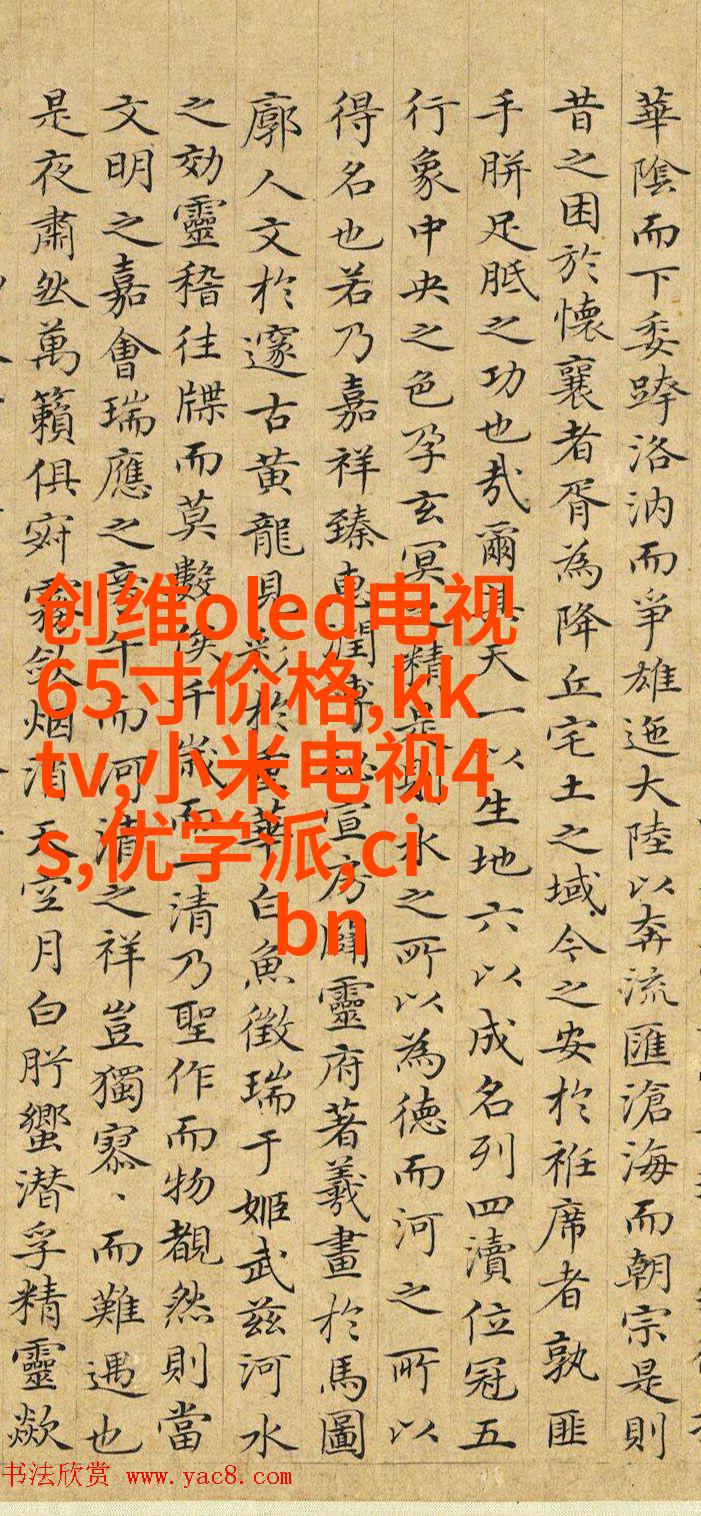 華陰而下委跨洛汭而爭雄迤大陸以奔流匯滄海而朝宗是則
昔之困於懷襄者胥為降丘宅土之域今之安於袵席者孰匪
手胼足胝之功也哉爾其天一以生地六以成名列四瀆位冠五
行象中央之色孕玄冥之精水之所以為德而河之所以
得名也若乃嘉祥臻宣房開靈府著羲畫於馬圖
廓人文於邃古黃龍白魚徵瑞于姬武茲河水
之効靈稽往牒而莫數俟千歲而一清乃聖作而物覩然則當
文明之嘉會瑞應之而河清之祥豈獨寡、而難遇也
是夜肅然萬籟俱寂霧斂烟消天空月白肸蠁潜孚精靈歘
创维oled电视
65寸价格,kk
tv,小米电视4
s,优学派,ci
bn
书法欣赏 www.yac8.com